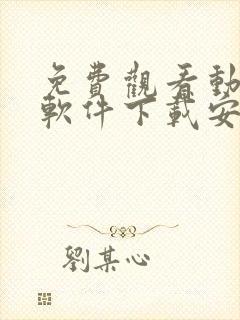 免費觀看動
軟件下載安
劉某心